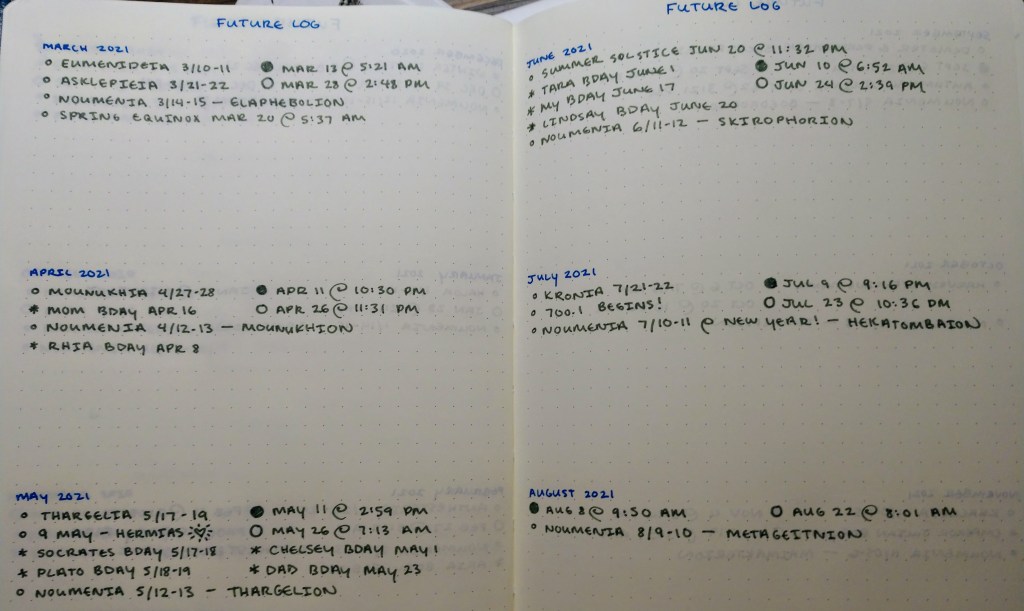 FUTURE LOG
MARCH 2021
EUMENIDEIA 3/10-11
ASKLEPIEIA 3/21-22
NOUMENIA 3/14-15 — ELAPHEBOLION
SPRING EQUINOX MAR 20 @ 5:37 AM
MAR 13 @ 5:21 AM
MAR 28 @ 2:48 PM
APRIL 2021
MOUNUKHIA 4/27-28
* MOM BDAY APR 16
NOUMENIA 4/12-13 — MOUNUKHION
* RHIA BDAY APR 8
APR 11 @ 10:30 PM
APR 26 @ 11:31 PM
MAY 2021
THARGELIA 5/17-19
9 MAY - HERMIAS
* SOCRATES BDAY 5/17-18
* PLATO BDAY 5/18-19
NOUMENIA 5/12-13 — THARGELION
MAY 11 @ 2:59 PM
MAY 26 @ 7:13 AM
* CHELSEY BDAY MAY!
* DAD BDAY MAY 23
FUTURE LOG
JUNE 2021
SUMMER SOLSTICE JUN 20 @ 11:32 PM
* TARA BDAY JUNE!
* MY BDAY JUNE 17
* LINDSAY BDAY JUNE 20
NOUMENIA 6/11-12 — SKIROPHORION
JUN 10 @ 6:52 AM
JUN 24 @ 2:39 PM
JULY 2021
KRONIA 7/21-22
700.1 BEGINS!
NOUMENIA 7/10-11 @ NEW YEAR! — HEKATOMBAION
JUL 9 @ 9:16 PM
JUL 23 @ 10:36 PM
AUGUST 2021
AUG 8 @ 9:50 AM
AUG 22 @ 8:01 AM
NOUMENIA 8/9-10 — METAGEITNION